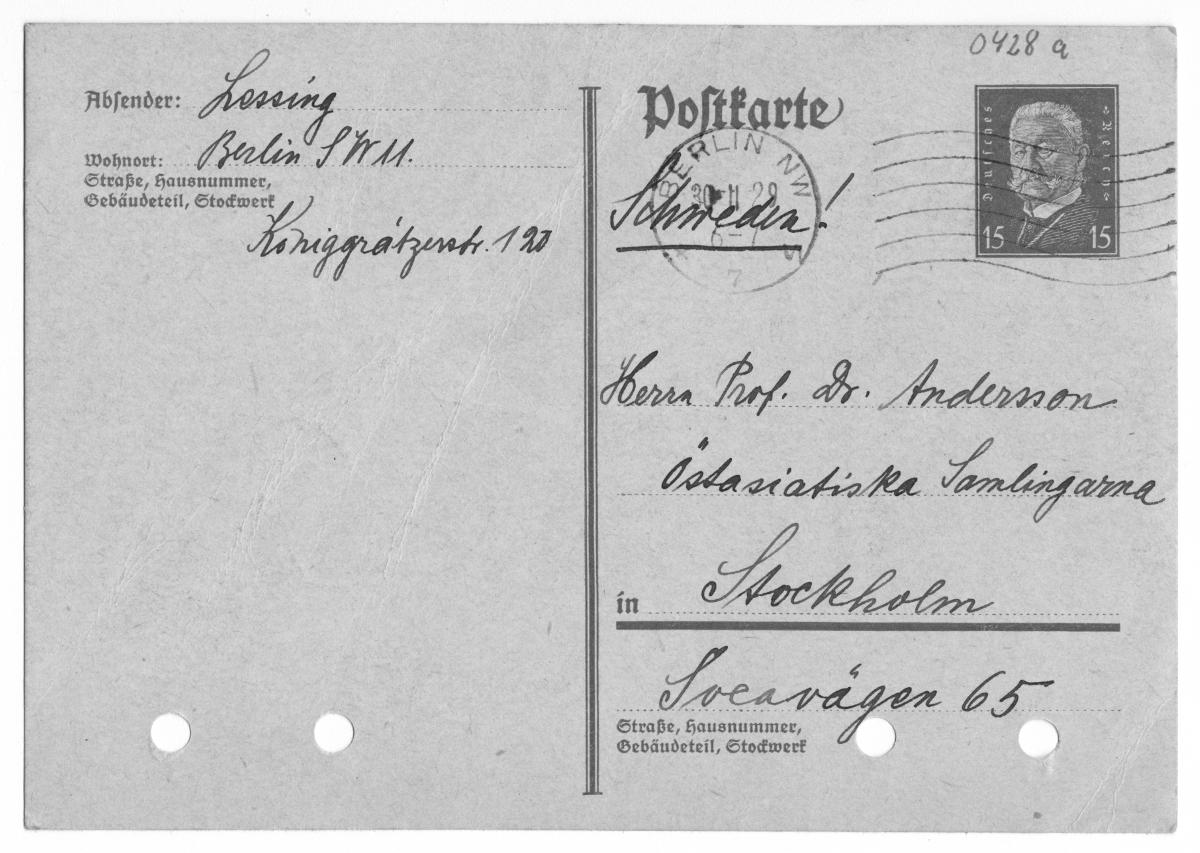 0428 a
Absender: Lessing
Wohnort: Berlin SW 11.
Straße, Hausnummer,
Gebäudeteil, Stockwerk
Königgrätzerstr. 120
Postkarte
Deutsches Reich
15 15
BERLIN NW
30 11 29
6-7
7
Schweden!
Herrn Prof. Dr. Andersson
Östasiatiska Samlingarna
in Stockholm
Sveavägen 65
Straße, Hausnummer,
Gebäudeteil, Stockwerk